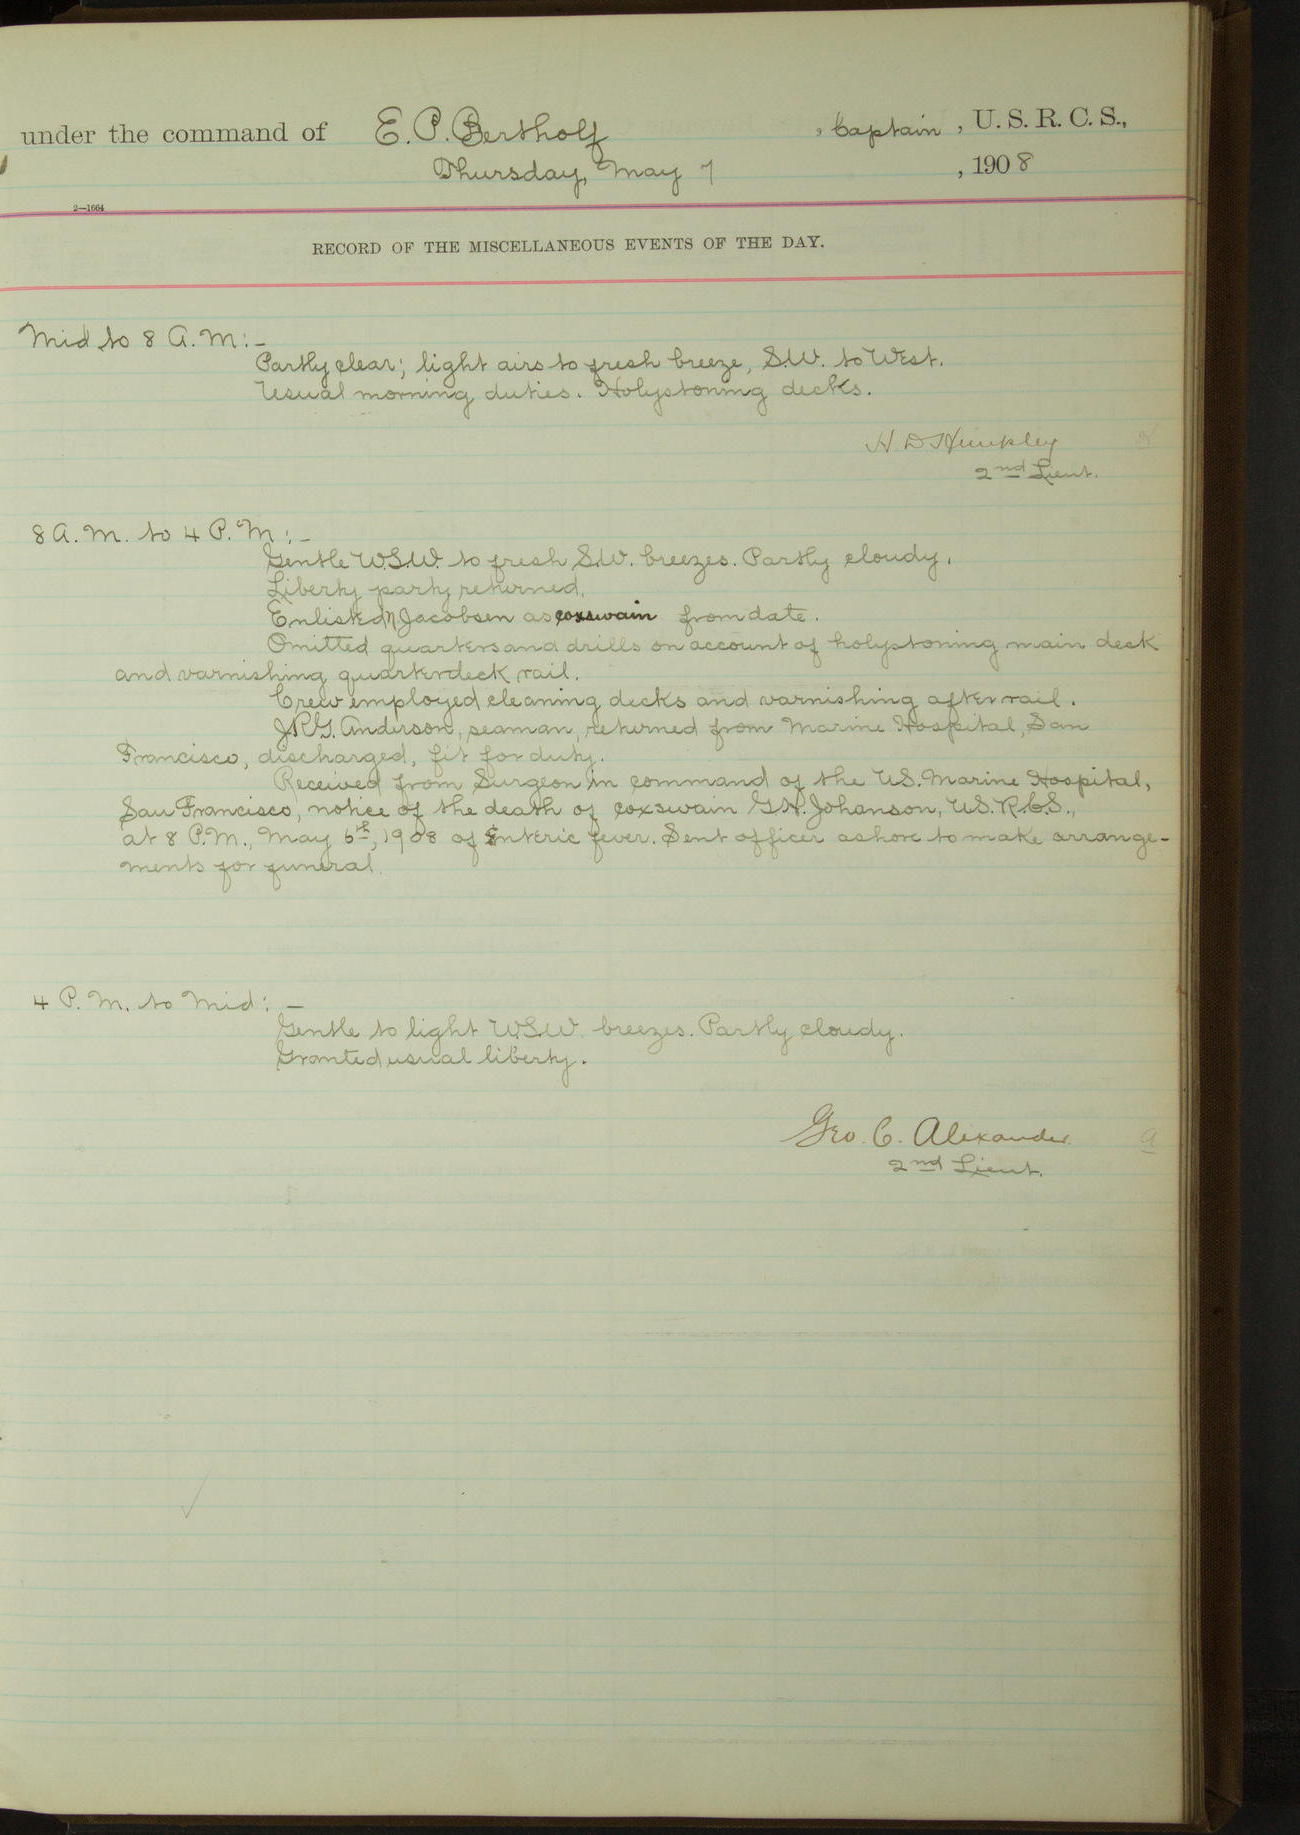 under the command of E. P. Bertholf , Captain , U. S. R. C. S.,
Thursday, May 7 , 1908
2—1664
RECORD OF THE MISCELLANEOUS EVENTS OF THE DAY.
Mid to 8 A.M:-
Partly clear; light airs to fresh breeze, S.W. to West.
Usual morning duties. Holystoning decks.
H. D. Hinckley
2nd Lieut.
8 A.M. to 4 P.M:-
Gentle W.S.W. to fresh S.W. breezes. Partly cloudy.
Liberty party returned.
Enlisted N Jacobsen as coxswain from date.
Omitted quarters and drills on account of holystoning main deck
and varnishing quarterdeck rail.
Crew employed cleaning decks and varnishing after rail.
J.R.G. Anderson, seaman, returned from Marine Hospital, San
Francisco, discharged, fit for duty.
Received from Surgeon in command of the U.S. Marine Hospital,
San Francisco, notice of the death of coxswain G.H. Johanson, U.S.R.C.S.,
at 8 P.M., May 6th, 1908 of Enteric fever. Sent officer ashore to make arrange-
ments for funeral.
4 P.M. to Mid: -
Gentle to light W.S.W. breezes. Partly cloudy.
Granted usual liberty.
Geo. C. Alexander
a
2nd Lieut.